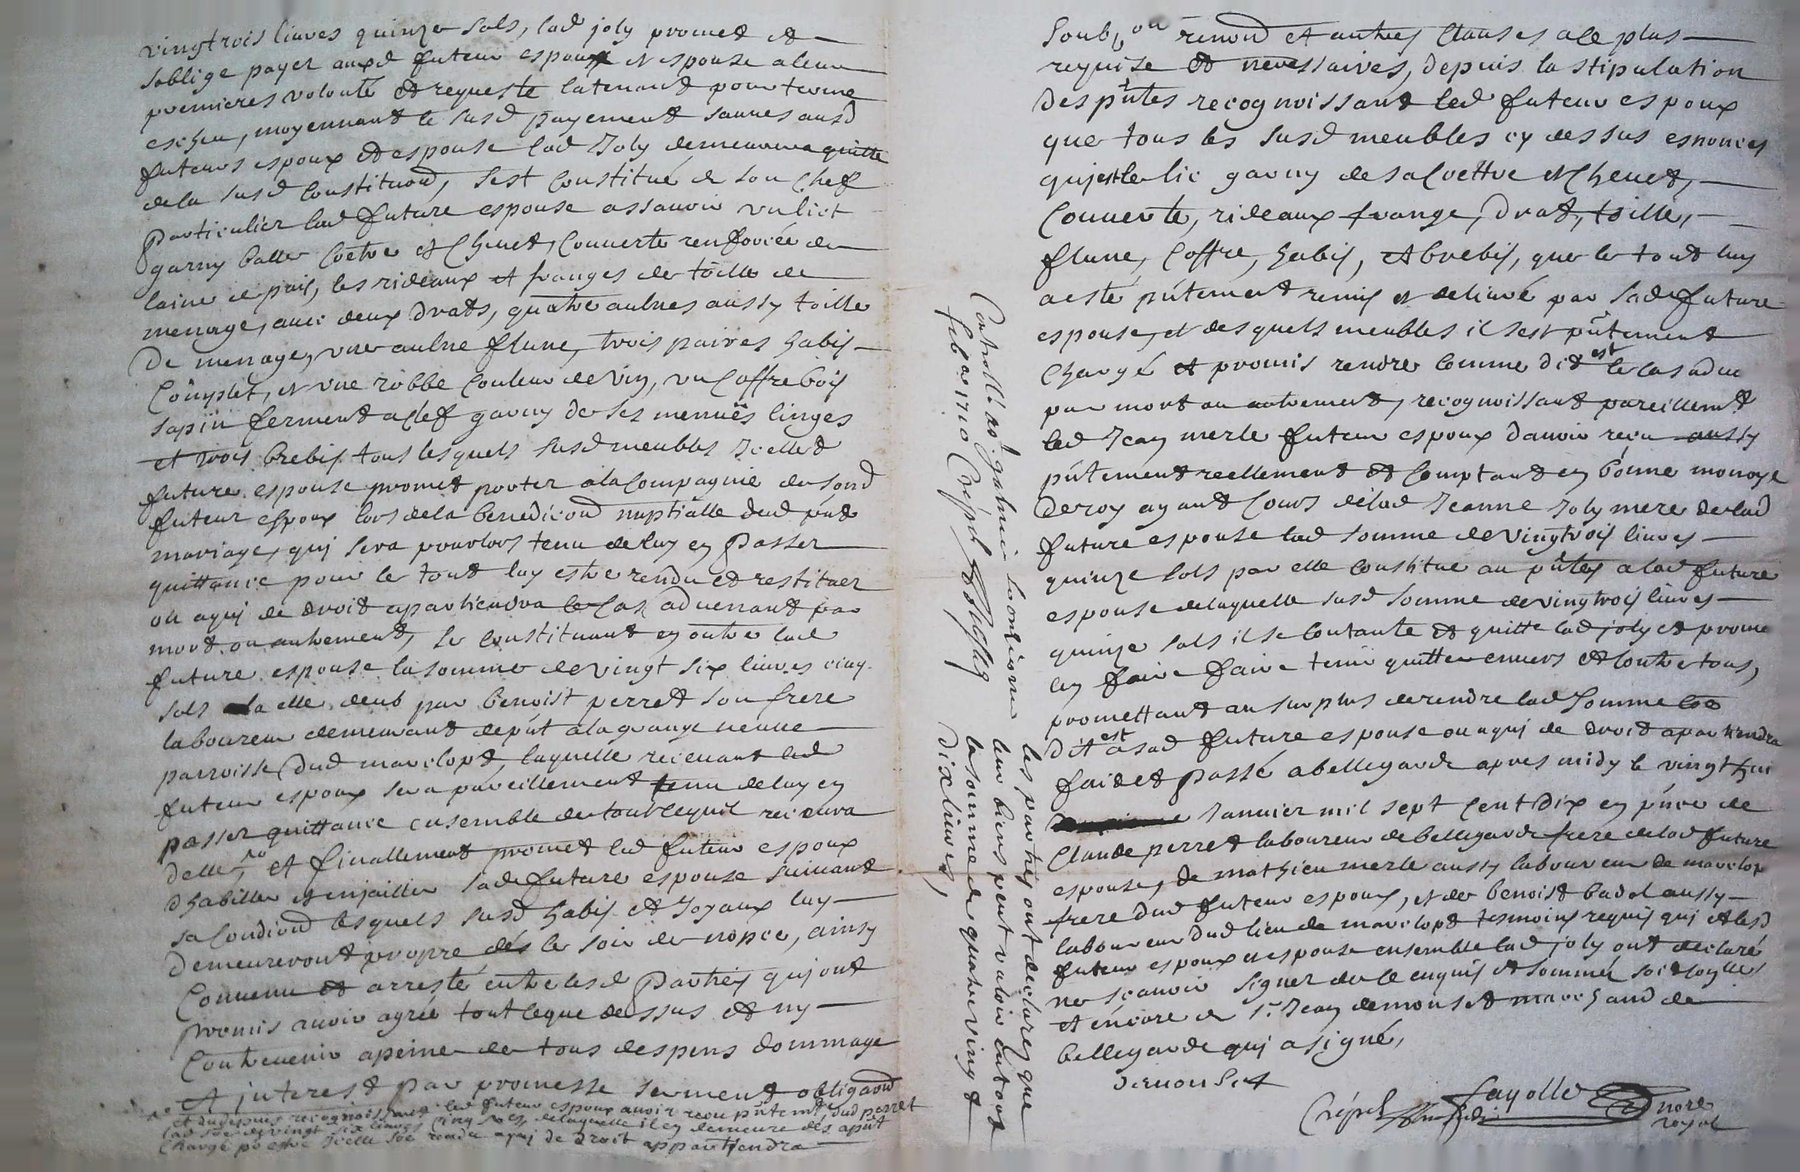 vingtrois livres quinze sols, lad joly promet et
soblige payer auxd futeur espoux et espouse a leur
premieres volonté et requeste la tenant pour terme
escheu, moyennant le susd payement sauves ausd
futeurs espoux et espouse lad Joly demeurera quitte
de la susd constituond, sest constitué de son chef
particulier lad future espouse assavoir un lict
garny balle coetre et chevet, couverte renforcée de
laine de pais, les rideaux et franges de toille de
menage, avec deux drats, quatre aulnes aussy toille
de menage, une aulne flune, trois paires habis
complet, et une robbe couleur de vin, un coffre bois
sapin ferment a clef garny de ses menuës linges
et trois brebis tous lesquels susd meubles Icelle
future espouse promet porter a la compagnie dusond
futeur espoux lors de la benedicond nuptialle dud pnt
mariage, qui sera pour lors tenu de luy en passer
quittance pour le tout luy estre rendu et restituer
ou a qui de droit apartiendra le cas advenant par
mort ou autrement, se constituant en outre lad
future espouse la somme de vingt six livres cinq
sols a elle deub par benoist perret son frere
laboureur demeurant de pnt a la grange neuve
parroisse dud marclopt, laquelle recevant led
futeur espoux sera pareillement tenu de luy en
passer quittance ensemble de tout ce quil recevra
delle, ro et finallement promet led futeur espoux
dhabiller et enjailler sad future espouse suivant
sa condiond lesquels susd habis et Joyaux luy
demeureront propre dés le soir de nopce, ainsy
convenu et arresté entre lesd parties qui ont
promis avoir agréé tout le que dessus et ny
contrevenir a peine de tous despens dommage
et interest par promesse serment obligaond
ro et au dessus recognoissant led futeur espoux avoir receu pntemt dud perret
lad soe de vingt six livres cinq sols de laquelle il en demeure dés a pnt
chargé po estre Icelle soe rendu a qui de droit appartiendra
Controllé no galmier
feb. 1710 Crépet
les parties ont declares que
leur biens peut valoir entour
la somme de quatre vingt
dix livres,
soubz on renond et autres clauses a ce plus
requise et necessaires, depuis la stipulation
des pntes recognoissant led futeur espoux
que tous les susd meubles cy dessus esnonces
qui est le lic garny de sa coettre et chevet,
couverte, rideaux frange, drat, toille,
flune, coffre, habis, et brebis, que le tout luy
a esté pntement remis et delivré par sad future
espouse, et desquels meubles il sest pntement
chargé et promis rendre comme dit est le cas adve
par mort ou autrement, recognoissant pareillemt
led Jean merle futeur espoux davoir receu aussy
pntement reellement et comptant en bonne monoye
de roy ayant cours de lad Jeanne Joly mere de lad
future espouse lad somme de vingtrois livres
quinze sols par elle constitue au pntes a lad future
espouse de laquelle susd somme de vingtrois livres
quinze sols il se contante et quitte lad joly et promet
en faire faire tenir quitter envers et contre tous,
promettant au surplus de rendre lad somme co
dit est a sad future espouse ou a qui de droit apartiendra
fait et passé a bellegarde apres midy le vingt
Janvier mil sept cent dix en pnce de
Claude perret laboureur de bellegarde frere de lad future
espouse, de mathieu merle aussy laboureur de marclop
frere dud futeur espoux, et de benoist badol aussy
laboureur dud lieu de marclopt tesmoins requis qui et lesd
futeur espoux et espouse ensemble lad joly ont declaré
ne scavoir signer de ce enquis et sommé
et encore de sr Jean demonset marchand de
bellegarde qui a signé,
demonset
Crépet
fayolle
nore
royal